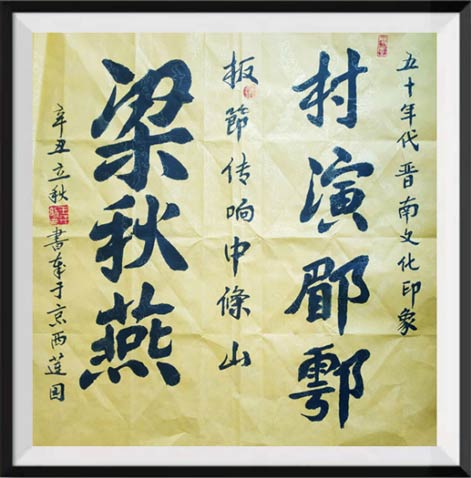 五十年代晋南文化印象
村演郿鄠
板節传响中條山
梁秋燕
辛丑立秋書奉于京西莲园